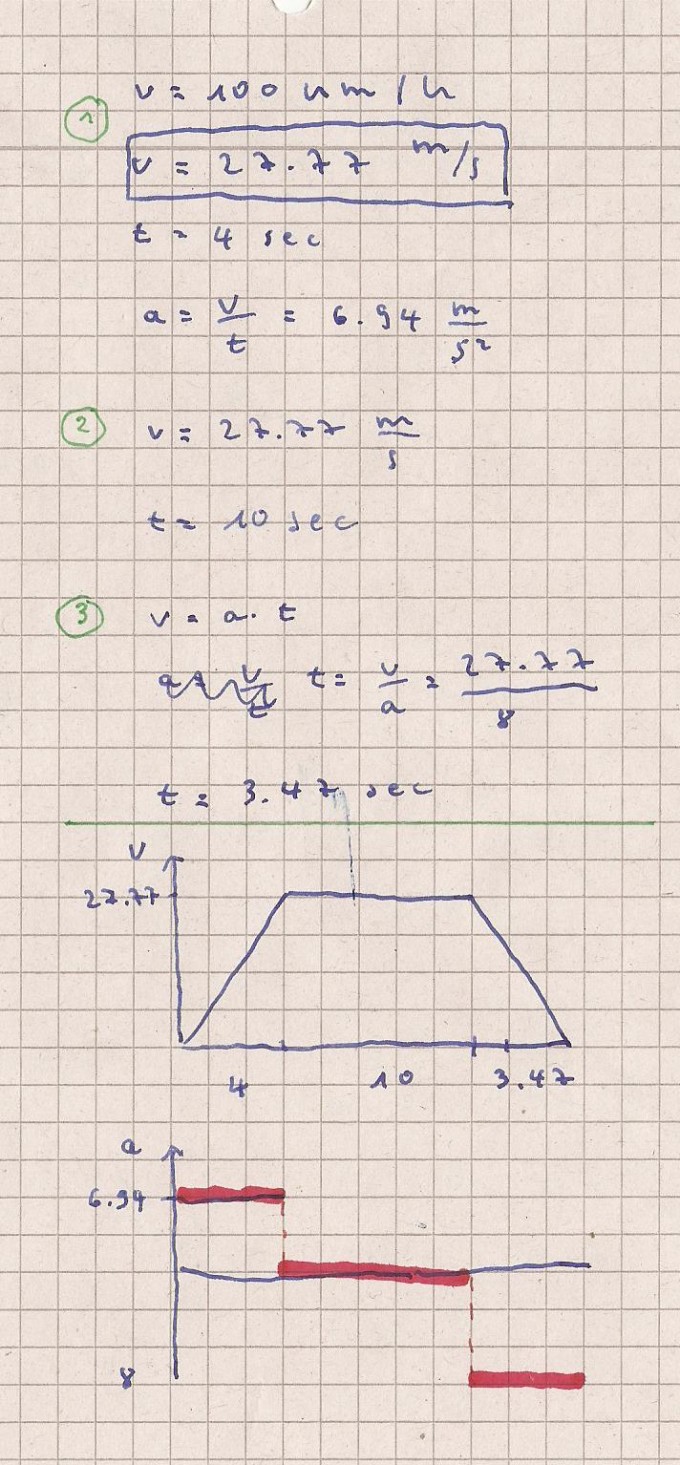 1
v = 100 km/h
v = 27.77 m/s
t = 4 sec
a = v/t = 6.94 m/s²
2
v = 27.77 m/s
t = 10 sec
3
v = a · t
t = v/a = 27.77/8
t = 3.47 sec
v
27.77
4 10 3.47
a
6.94
8